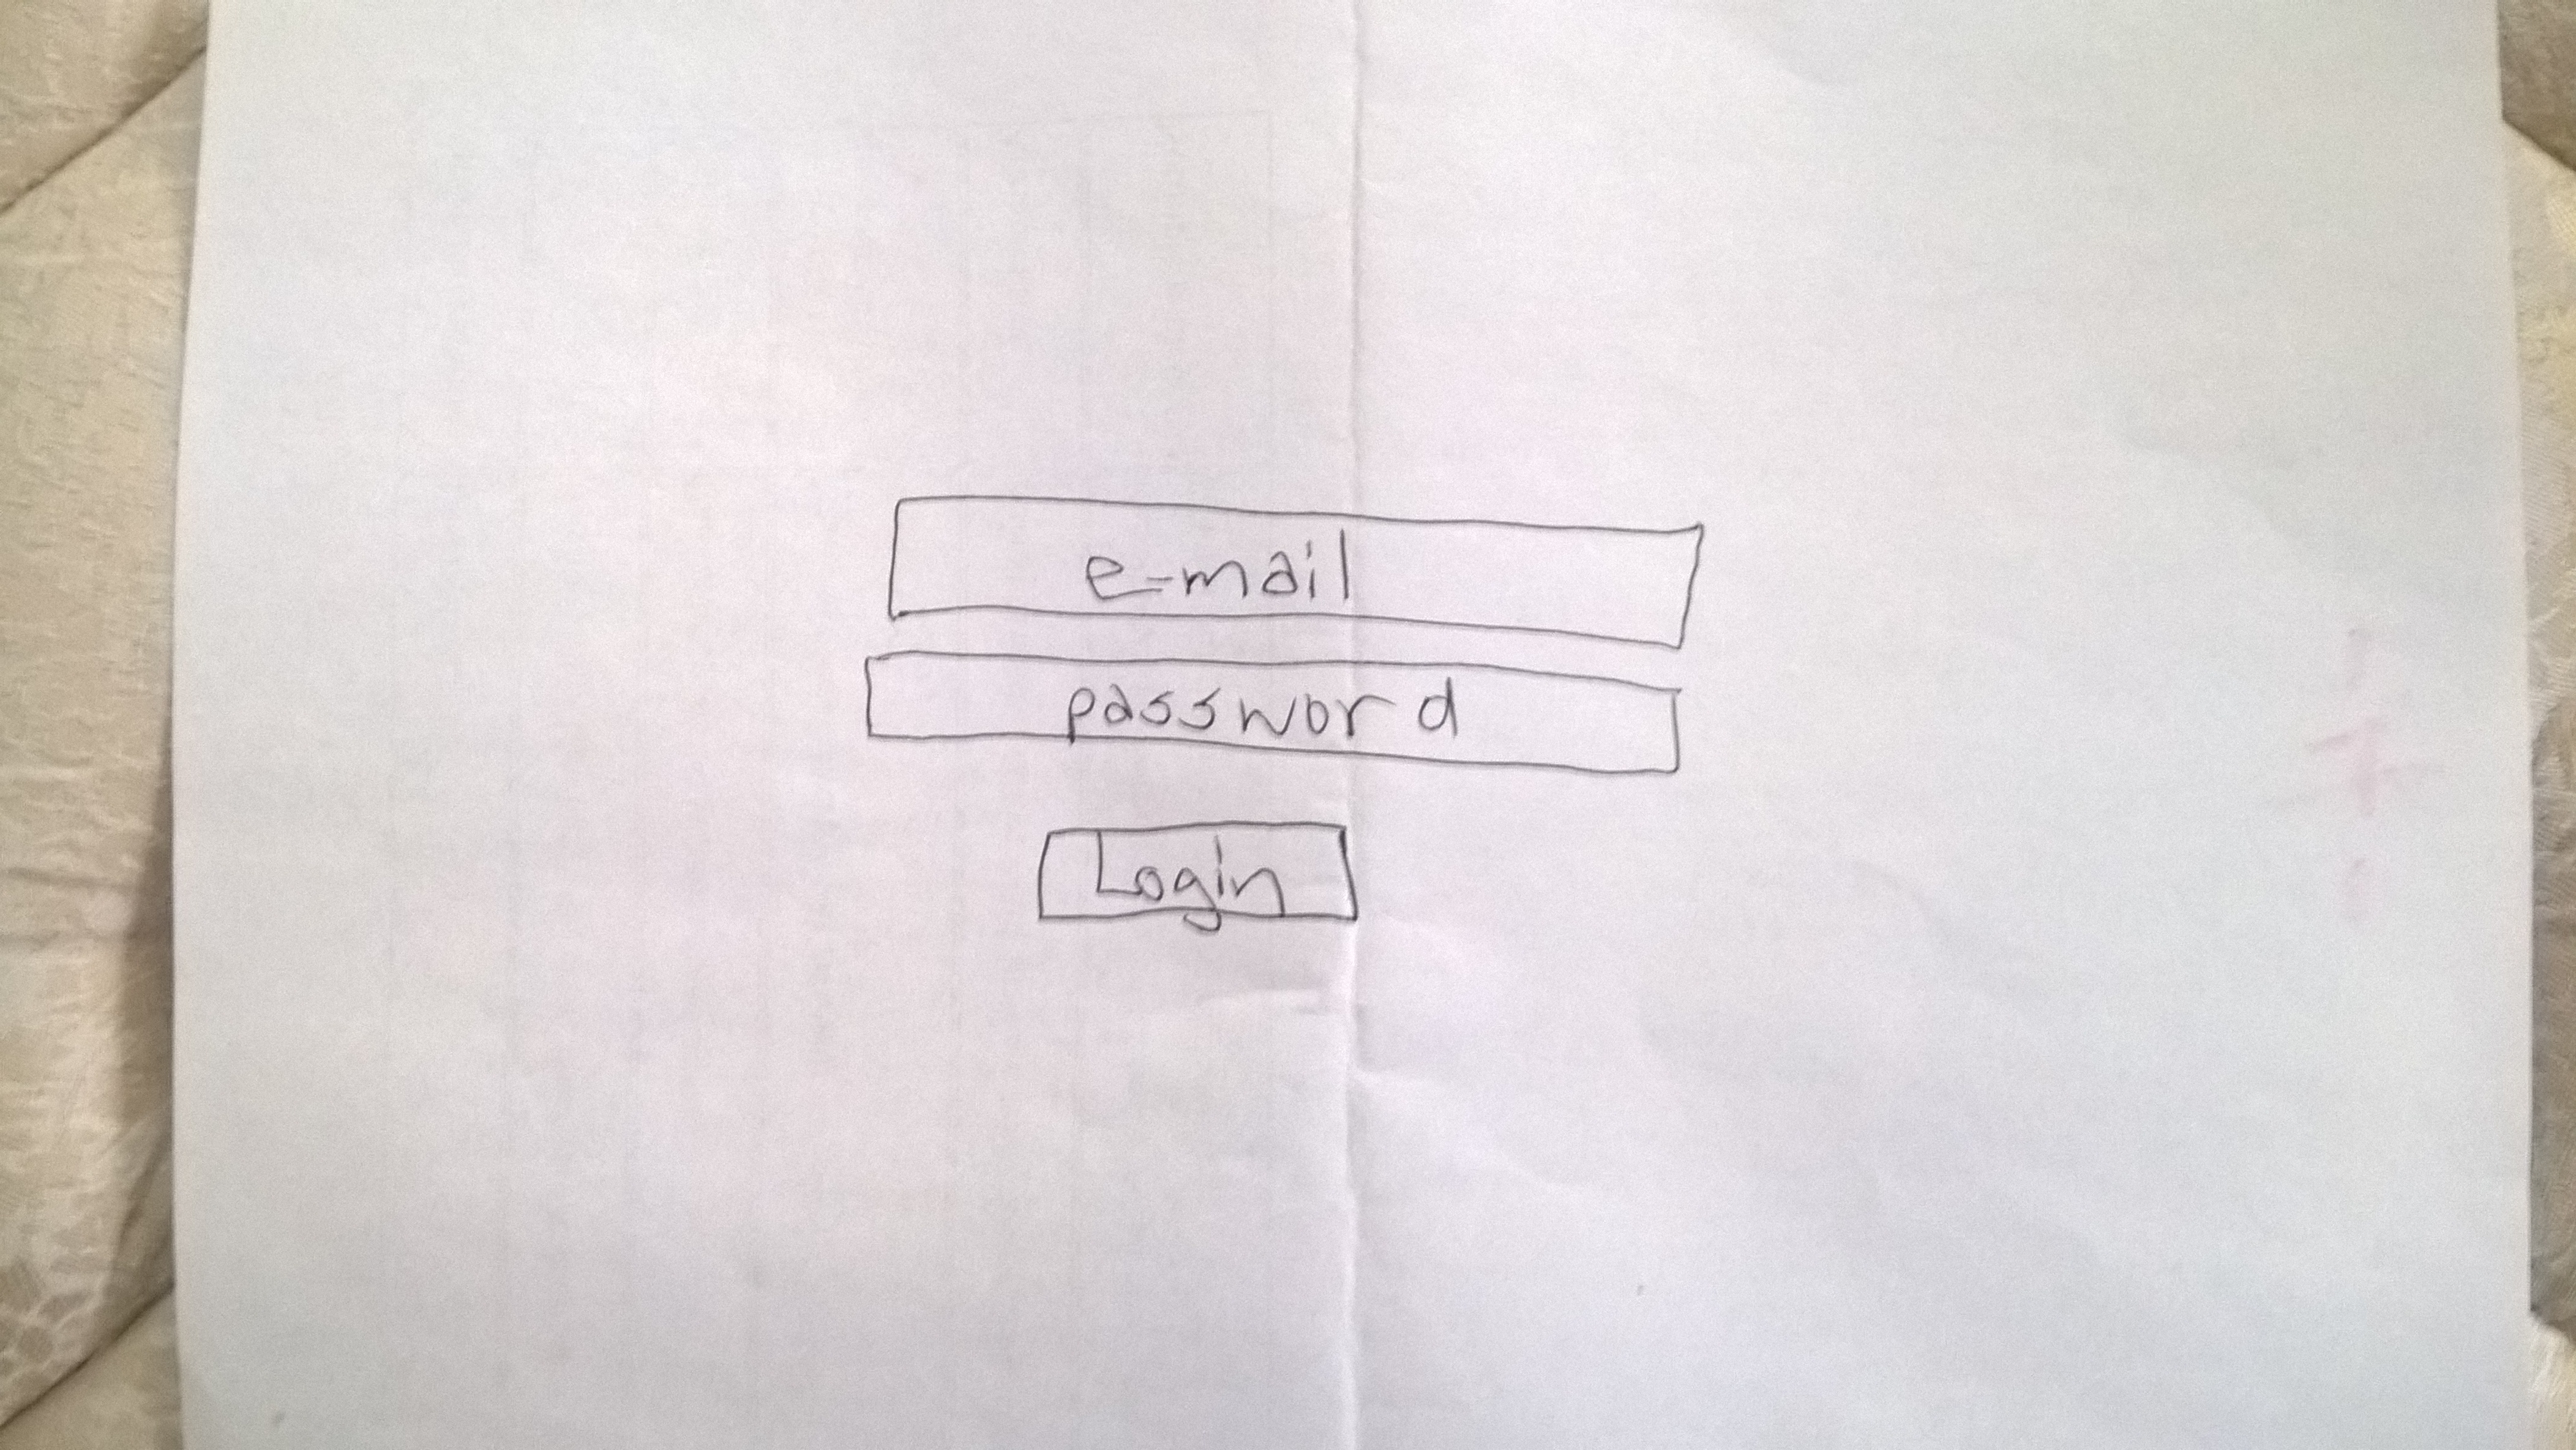 e-mail
password
Login